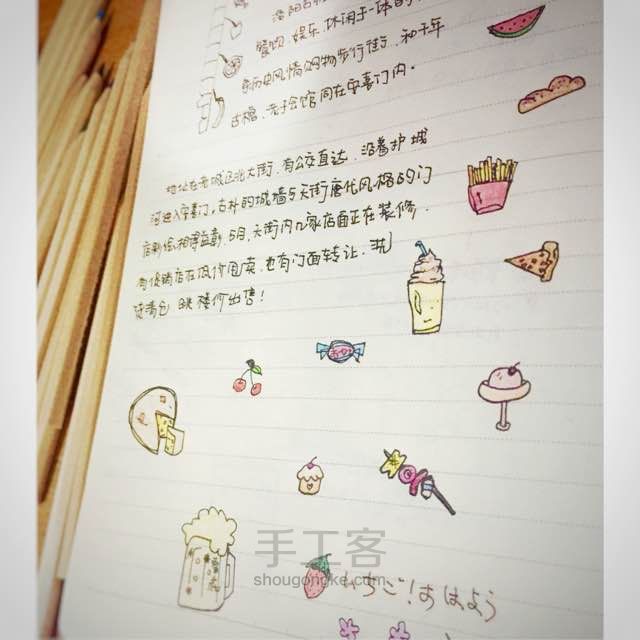 洛阳古
餐饮、娱乐、休闲于一体的
安历史风情购物步行街，和千年
古槐，老子会馆同在安喜门内。
地址在老城区北大街，有公交直达，沿着护城
河进入安喜门，古朴的城墙与天街唐代风格的门
店彩绘相得益彰，5月，天街内几家店面正在装修，
有促销店在低价甩卖，也有门面转让，
跳楼价出售！
手工客
shougongke.com
いちご！おはよう